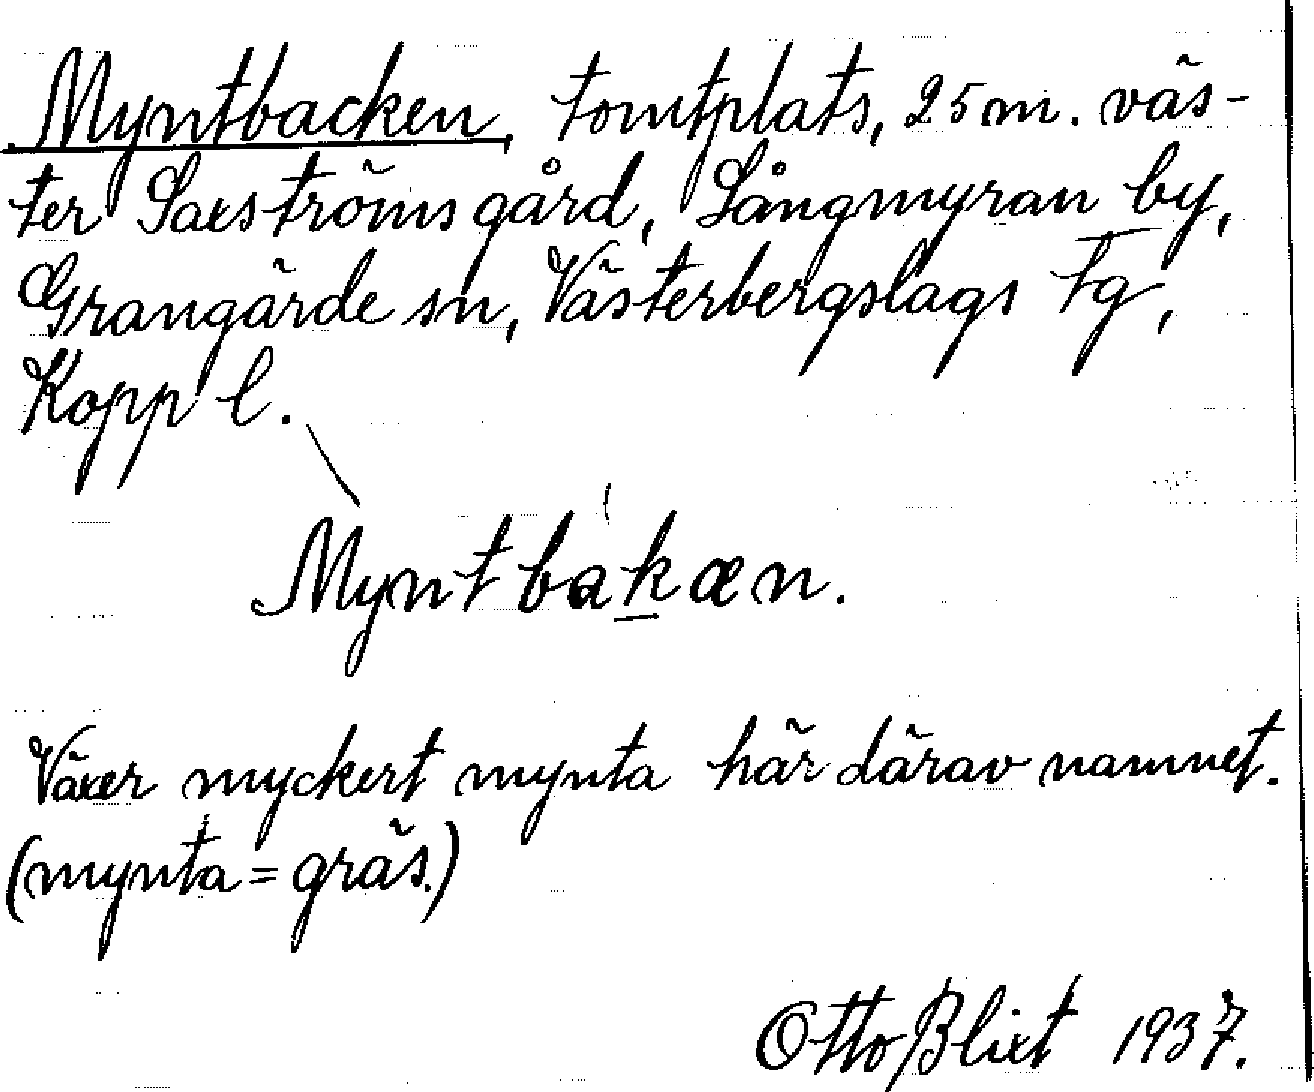 Myntbacken, tomtplats, 25 m. väs-
ter Saxströms gård, Långmyran by,
Grangärde sn, Västerbergslags tg,
Kopp l.
Myntbakæn.
Växer myckert mynta här därav namnet.
(mynta = gräs.)
Otto Blixt 1937.